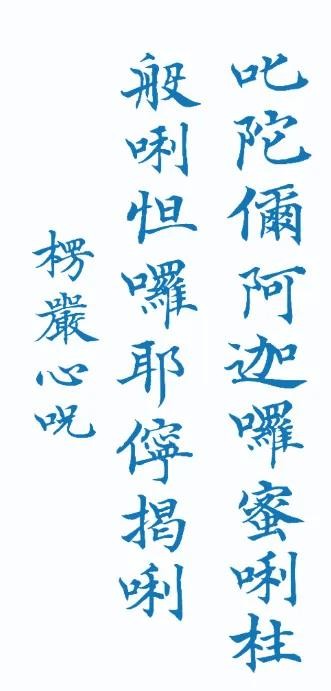 叱陀儞阿迦囉蜜唎柱
般唎怛囉耶儜揭唎
楞嚴心咒